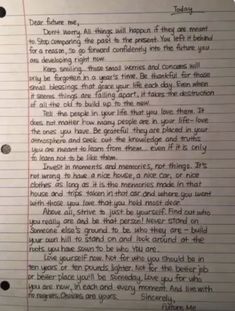 Today
Dear future me,
Don't worry. All things will happen if they are meant
to. Stop comparing the past to the present. You left it behind
for a reason, so go forward confidently into the future you
are developing right now.
Keep smiling. Those small worries and concerns will
only be forgotten in a year's time. Be thankful for those
small blessings that grace your life each day. Even when
it seems things are falling apart, it takes the destruction
of all the old to build up to the new.
Tell the people in your life that you love them. It
does not matter how many people are in your life-love
the ones you have. Be grateful they are placed in your
atmosphere and seek out the knowledge and truths
you are meant to learn from them... even if it is only
to learn not to be like them.
Invest in moments and memories, not things. It's
not wrong to have a nice house, a nice car, or nice
clothes as long as it is the memories made in that
house and trips taken in that car and where you went
with those you love that you hold most dear.
Above all, strive to just be yourself. Find out who
you really are and be that person! Never stand on
someone else's ground to be who they are - build
your own hill to stand on and look around at the
roots you have sown to be who you are.
Love yourself now. Not for who you should be in
ten years or ten pounds lighter. Not for the better job
or better place you'll be someday. Love you for who
you are now, in each and every moment. And live with
no regrets. Chances are yours.
Sincerely,
Future Me